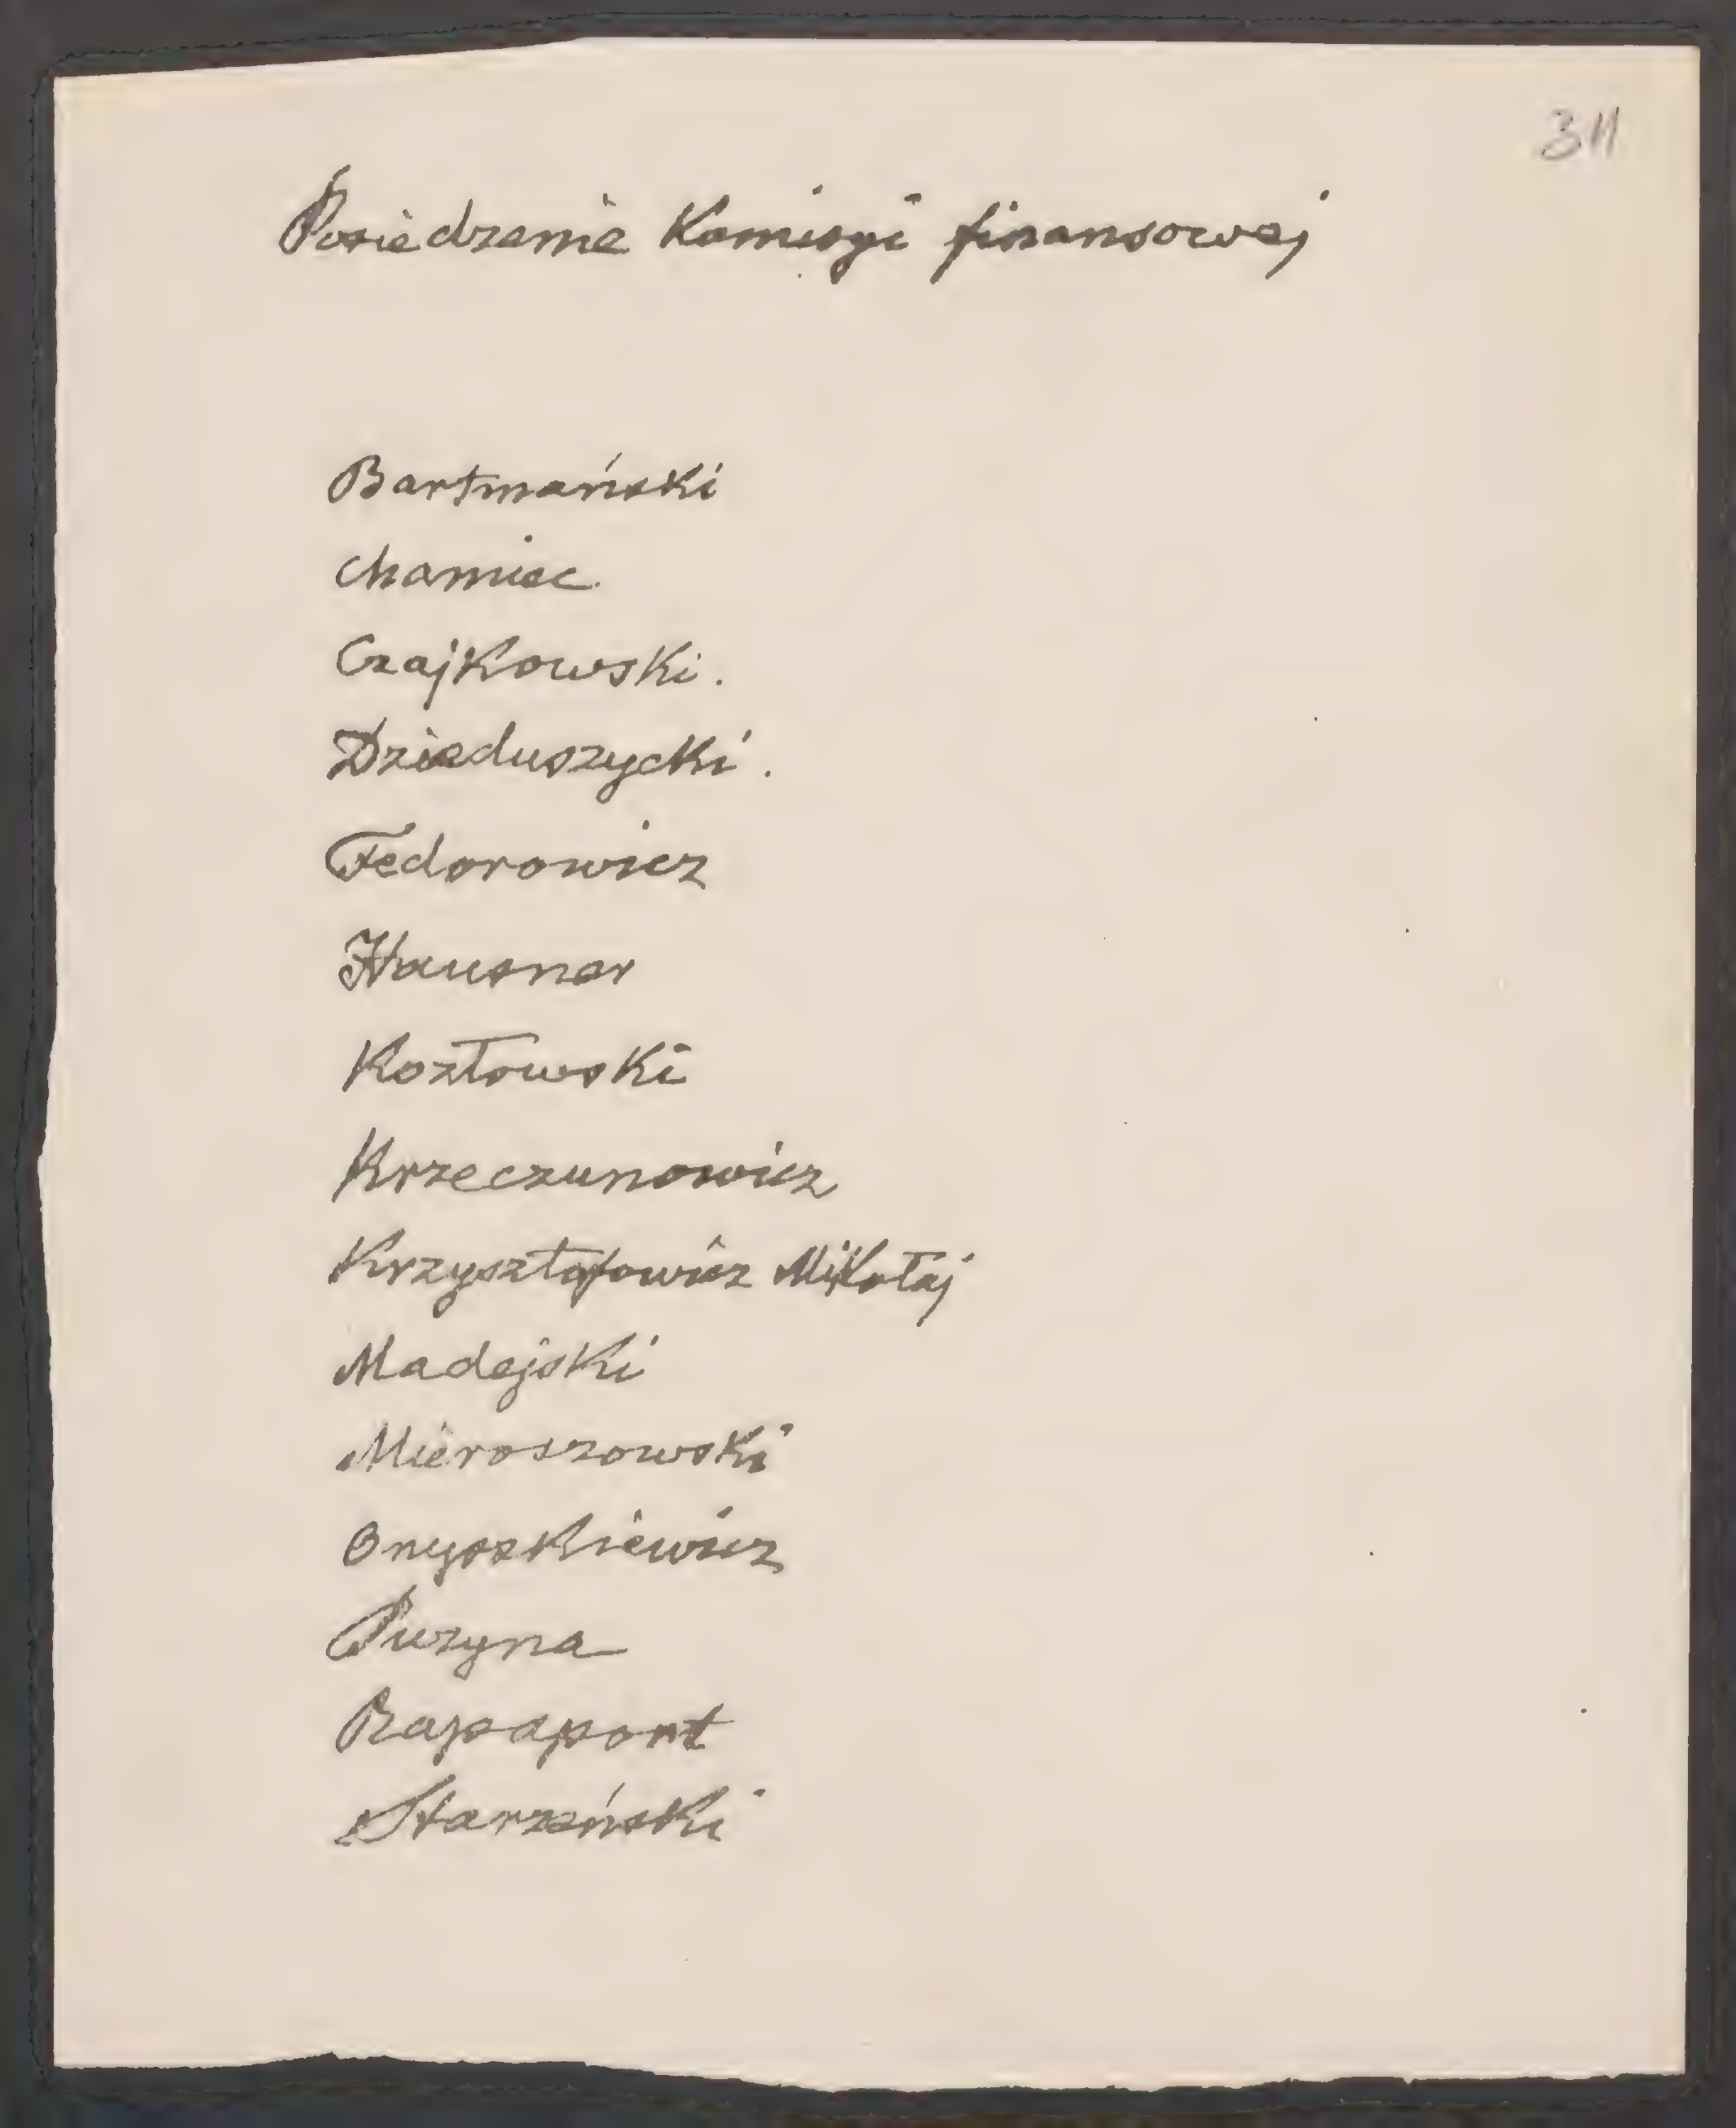 311
Posiedzenie Komisyi finansowej
Bartmański
Chamiec
Czajkowski.
Dzieduszycki.
Fedorowicz
Hausner
Kozłowski
Krzeczunowicz
Krzysztofowicz Mikołaj
Madejski
Mieroszowski
Onyszkiewicz
Puzyna
Rapaport
Starzeński